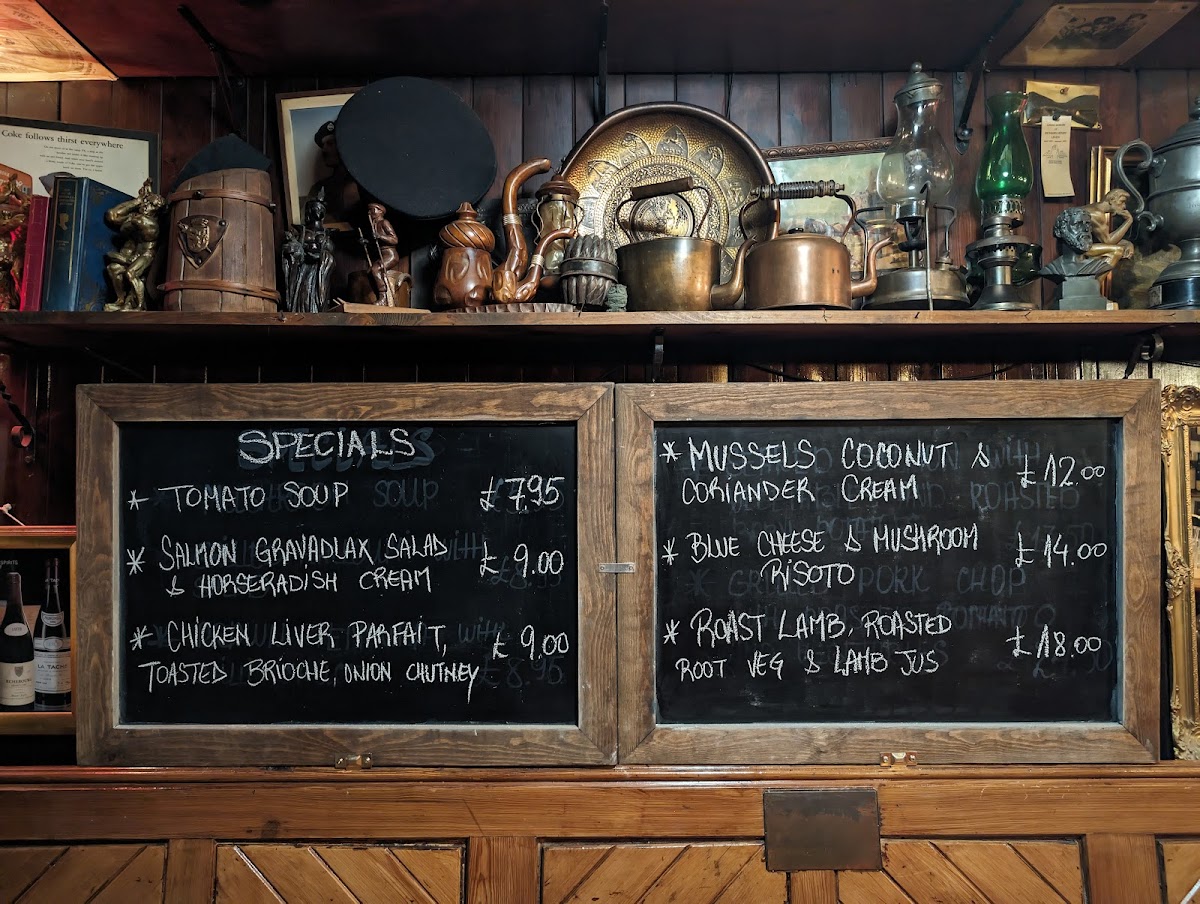 Coke follows thirst everywhere
SPECIALS
* TOMATO SOUP £7.95
* SALMON GRAVADLAX SALAD
& HORSERADISH CREAM £9.00
* CHICKEN LIVER PARFAIT,
TOASTED BRIOCHE, ONION CHUTNEY £9.00
* MUSSELS COCONUT &
CORIANDER CREAM £12.00
* BLUE CHEESE & MUSHROOM
RISOTO £14.00
* ROAST LAMB, ROASTED
ROOT VEG & LAMB JUS £18.00
LA TACHE